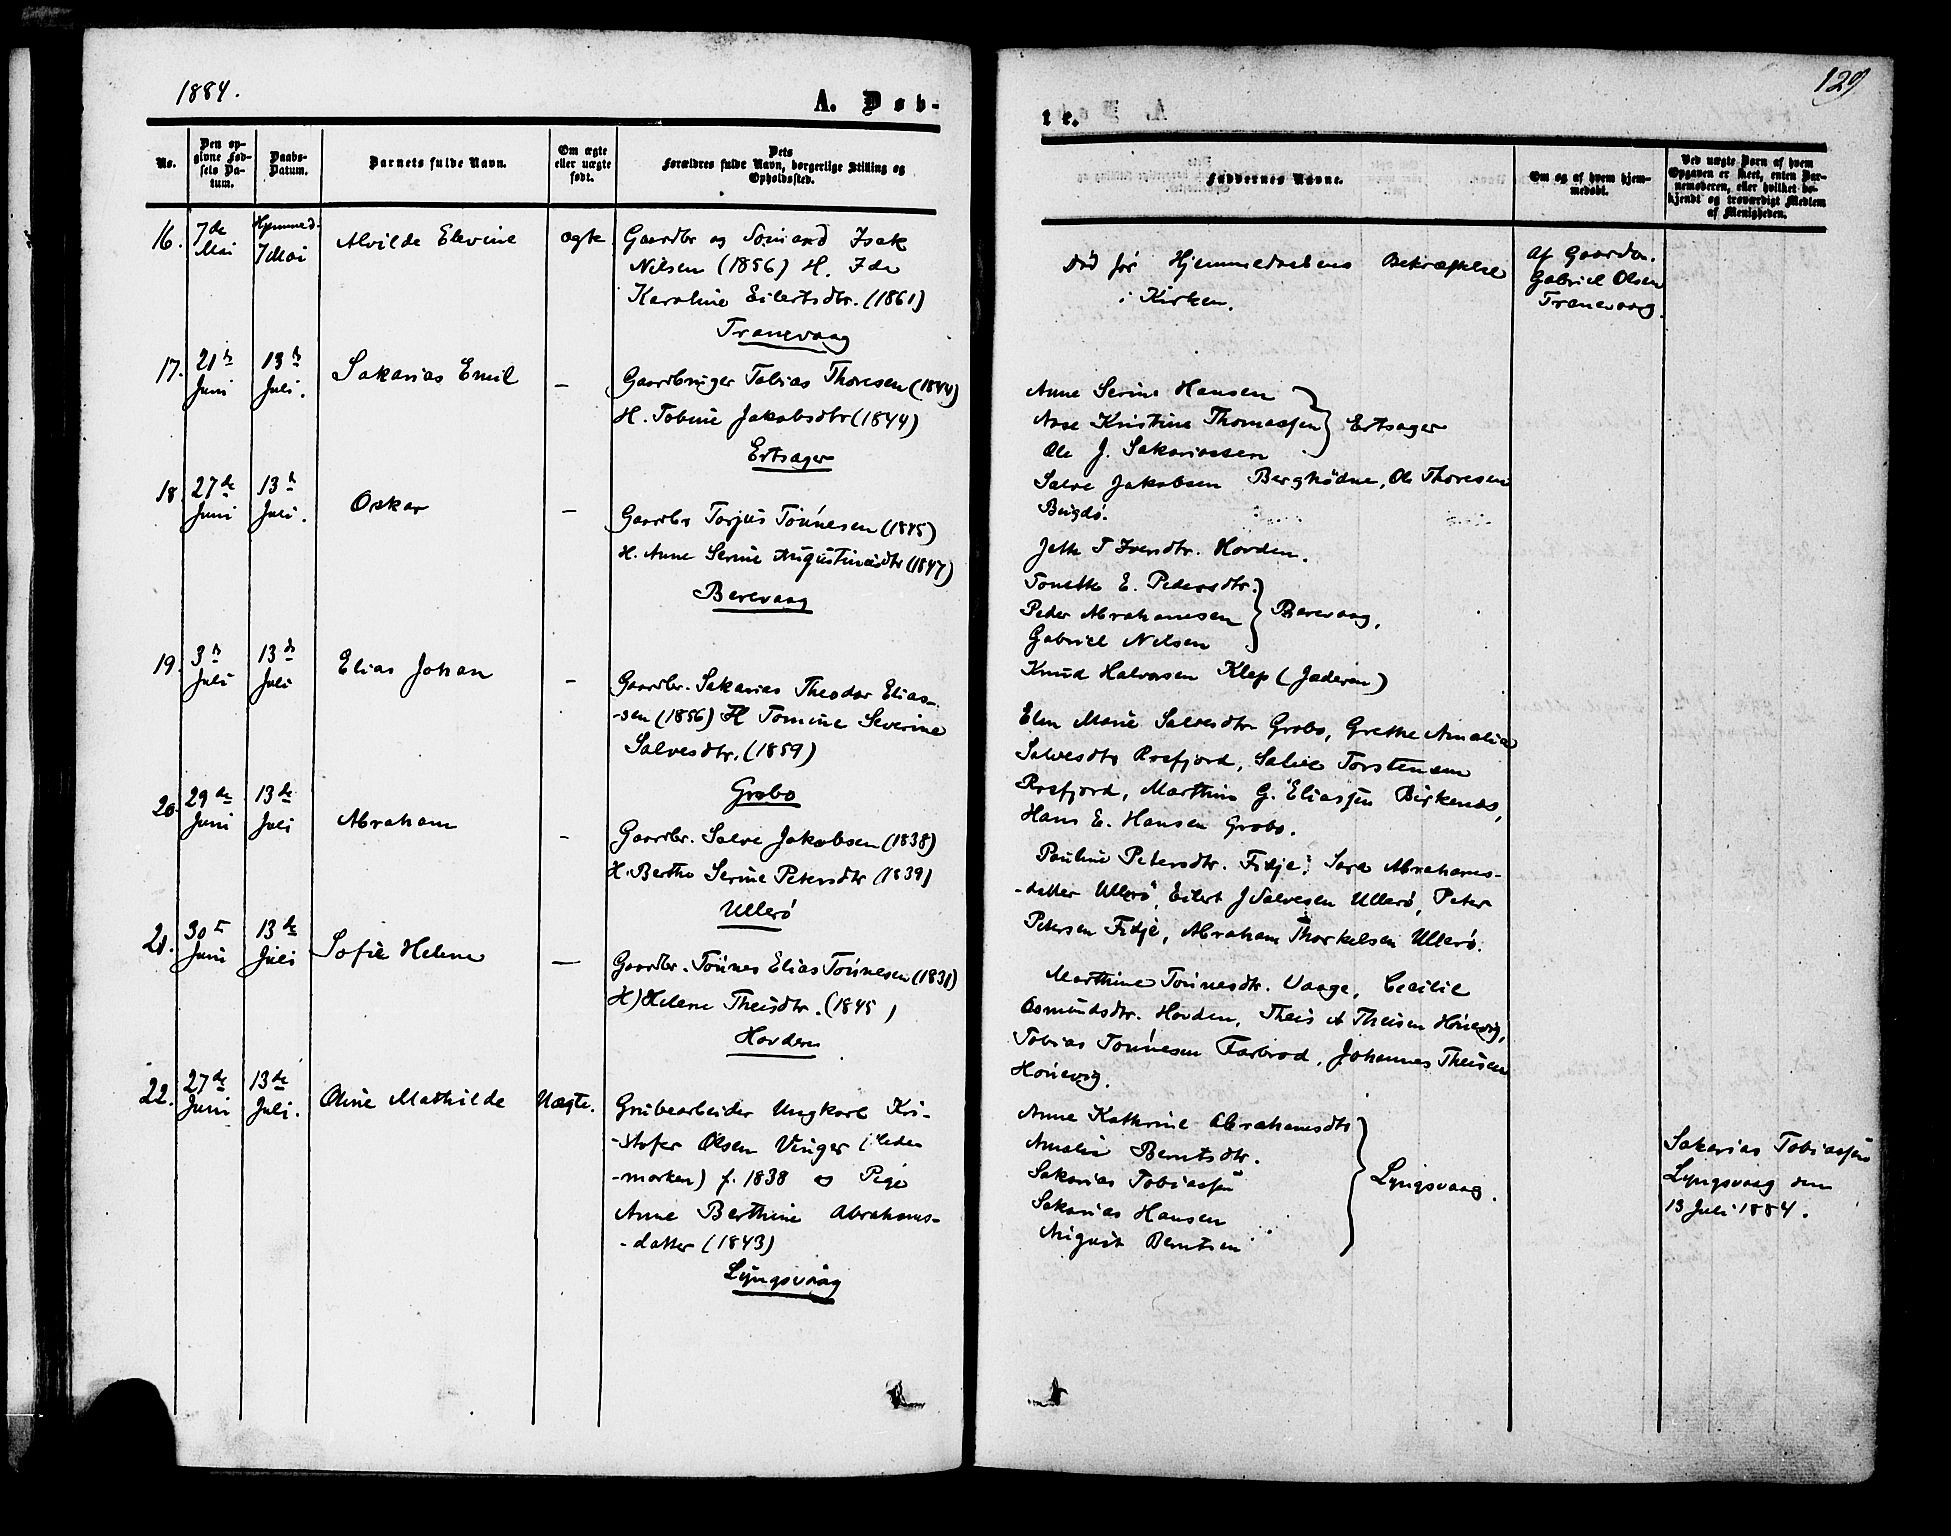 1884.
A. Døb-
No.
Den op-
givne Fød-
sels Da-
tum.
Daabs-
Datum.
Barnets fulde Navn.
Om ægte
eller uægte
født.
Dets
Forældres fulde Navn, borgerlige Stilling og
Opholdssted.
16.
7de
Mai
Hjemmed.
7 Mai
Alvilde Elevine
ægte
Gaardbr og Sømand Isak
Nilsen (1856) H. Ida
Karoline Eilertsdtr. (1861)
Tranevaag
17.
21de
Juni
13de
Juli.
Sakarias Emil
—
Gaardbruger Tobias Thoresen (1844)
H. Tobine Jakobsdtr (1844)
Ertsager
18.
27de
Juni
13de
Juli.
Oskar
—
Gaardbr Torjus Tønnesen (1845)
H. Anne Serine Augustinusdtr (1847)
Berevaag
19.
3de
Juli
13de
Juli
Elias Johan
—
Gaardbr. Sakarias Theodor Elias-
-sen (1856) H Tomine Severine
Salvesdtr. (1859)
Grobo
20.
29de
Juni
13de
Juli
Abraham
—
Gaardbr. Salve Jakobsen (1838)
H. Berthe Serine Petersdtr (1839)
Ullerø
21.
30te
Juni
13de
Juli
Sofie Helene
—
Gaardbr. Tønnes Elias Tønnesen (1831)
H) Helene Theisdtr. (1845)
Hovden
22.
27de
Juni
13de
Juli.
Oline Mathilde
Uægte.
Grubearbeider Ungkarl Kri-
-stofer Olsen Vinger (Hede-
-marken) f. 1838 og Pige
Anne Berthine Abrahams-
-datter (1843)
Lyngsvaag
129
te.
Faddernes Navne.
Om og af hvem hjem-
medøbt.
Ved uægte Børn af hvem
Opgaven er skeet, enten Bar-
nemoderen, eller hvilket be-
kjendt og troværdigt Medlem
af Menigheden.
Død før Hjemmedaabens Bekræftelse
i Kirken.
Af Gaardbr.
Gabriel Olsen
Tranevaag.
Anne Serine Hansen
Aase Kristine Thomassen } Ertsager
Ole J. Sakariassen
Salve Jakobsen Berghødne, Ole Thoresen
Bøigdø.
Jette T Iversdtr. Hovden.
Tonette E. Pedersdtr.
Peder Abrahamsen } Berevaag,
Gabriel Nilsen
Knud Halvorsen Klep (Jæderen)
Elen Marie Salvesdtr Grobo, Grethe Amalia
Salvesdtr Rosfjord, Salve Torstensen
Rosfjord, Marthin G. Eliassen Birkenes,
Hans E. Hansen Grobo.
Pauline Petersdtr. Fidje, Sara Abrahams-
-datter Ullerø, Eilert J Salvesen Ullerø, Peter
Petersen Fidje, Abraham Thorkelsen Ullerø.
Marthine Tønnesdtr. Vaage, Cecilie
Osmundsdtr. Hovden, Theis A Theisen Hönevig,
Tobias Tønnesen Farbrod, Johannes Theisen
Hönevig.
Anne Kathrine Abrahamsdtr
Amalie Berntsdtr.
Sakarias Tobiassen } Lyngsvaag.
Sakarias Hansen
August Berntsen
Sakarias Tobiassen
Lyngsvaag den
13 Juli 1884.